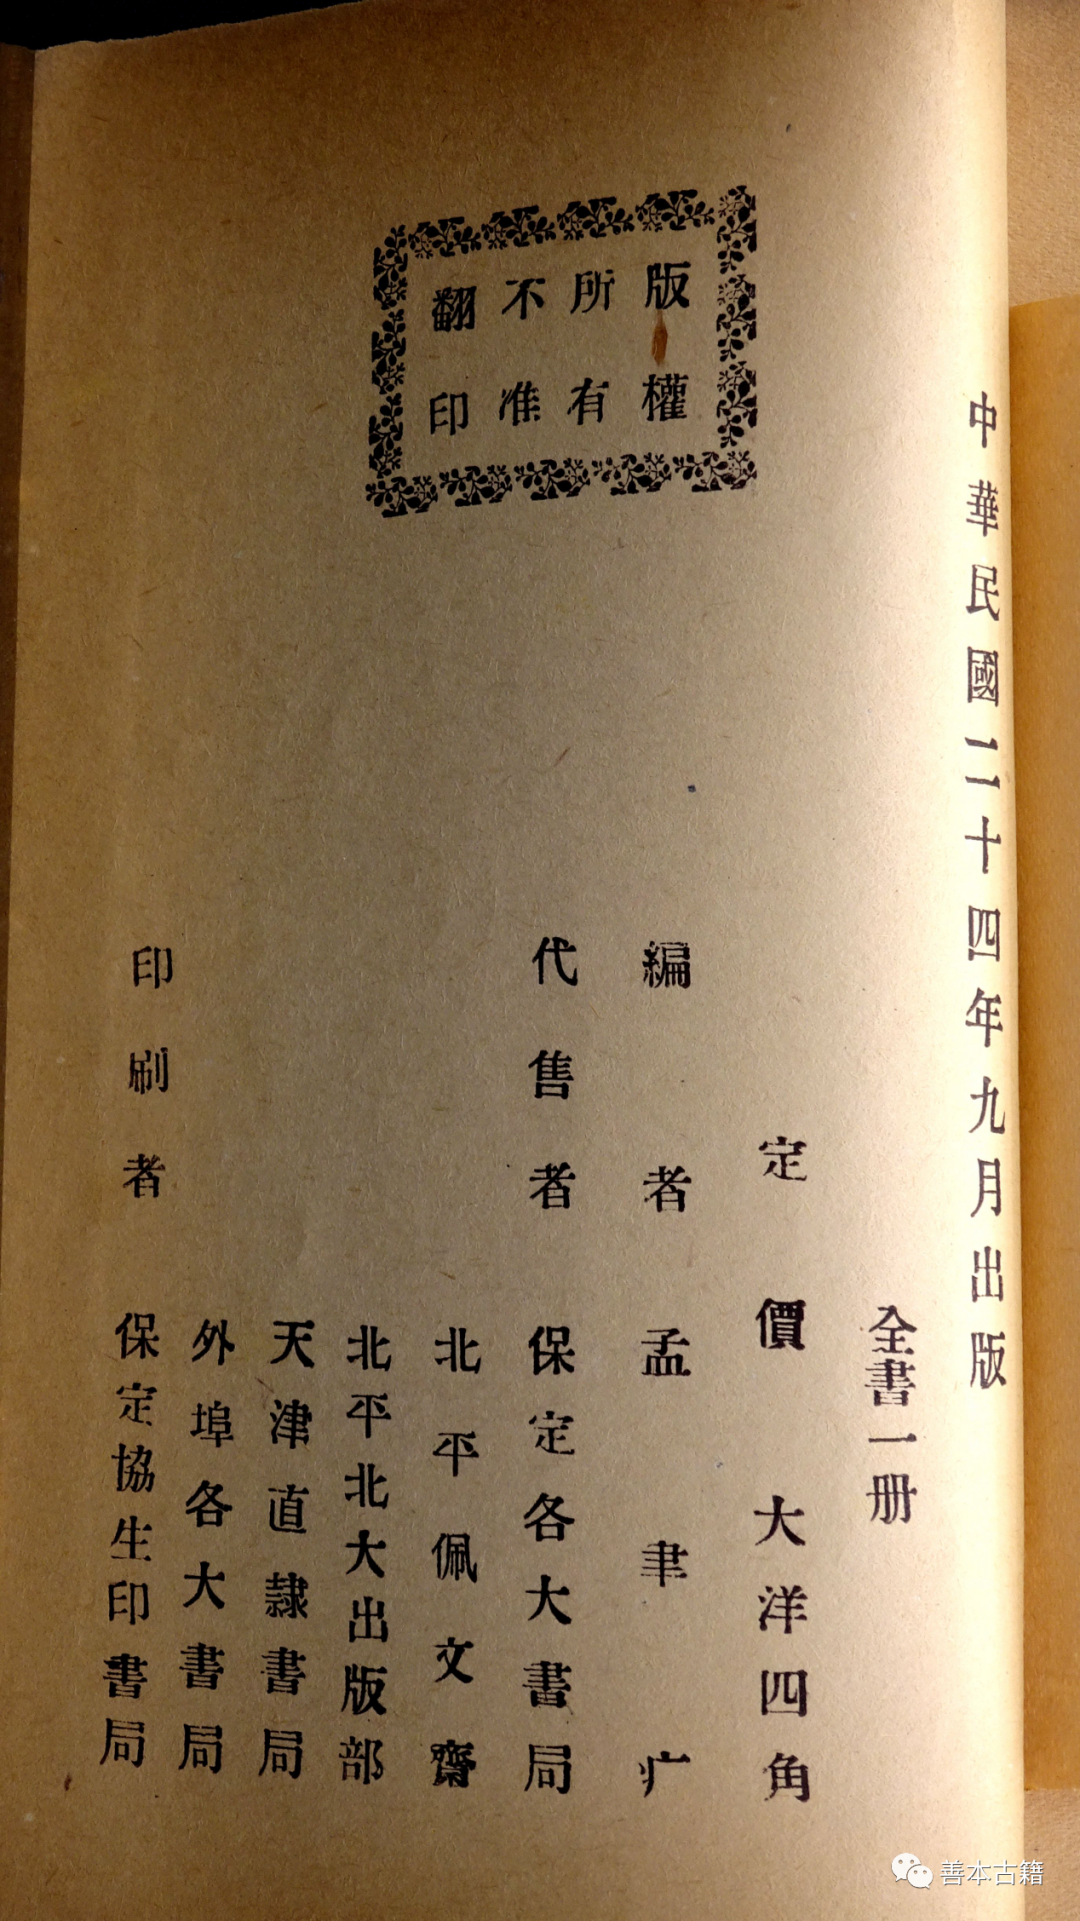 中華民國二十四年九月出版
全書一册
定價 大洋四角
編者 孟聿疒
代售者 保定各大書局
北平佩文齋
北平北大出版部
天津直隸書局
外埠各大書局
印刷者 保定協生印書局
版權
所有
不准
翻印
善本古籍